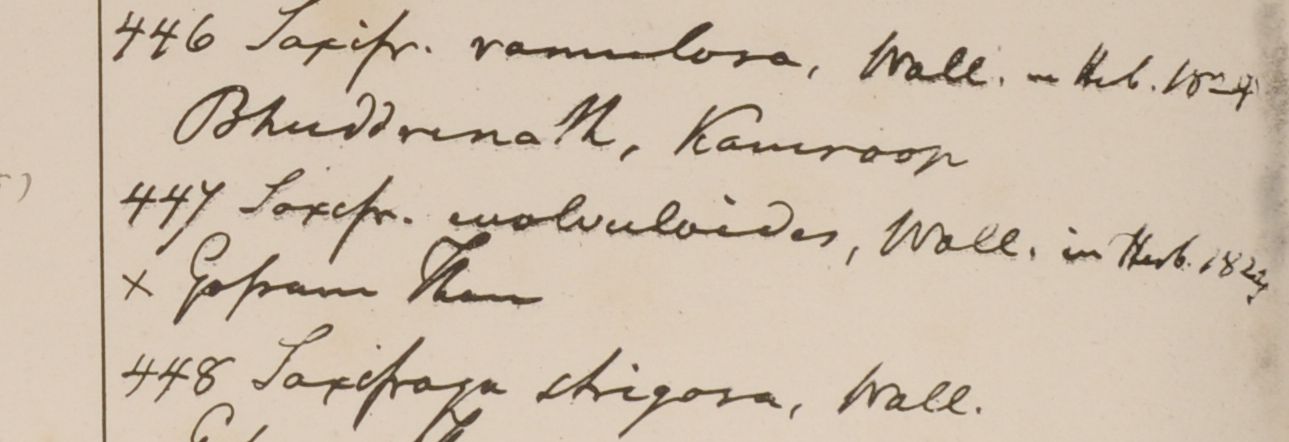 446 Saxifr. ramulosa, Wall. in Herb. 1824
Bhuddrenath, Kamroop
447 Saxifr. evolvuloides, Wall. in Herb. 1824
× Gofsam Than
448 Saxifraga strigosa, Wall.